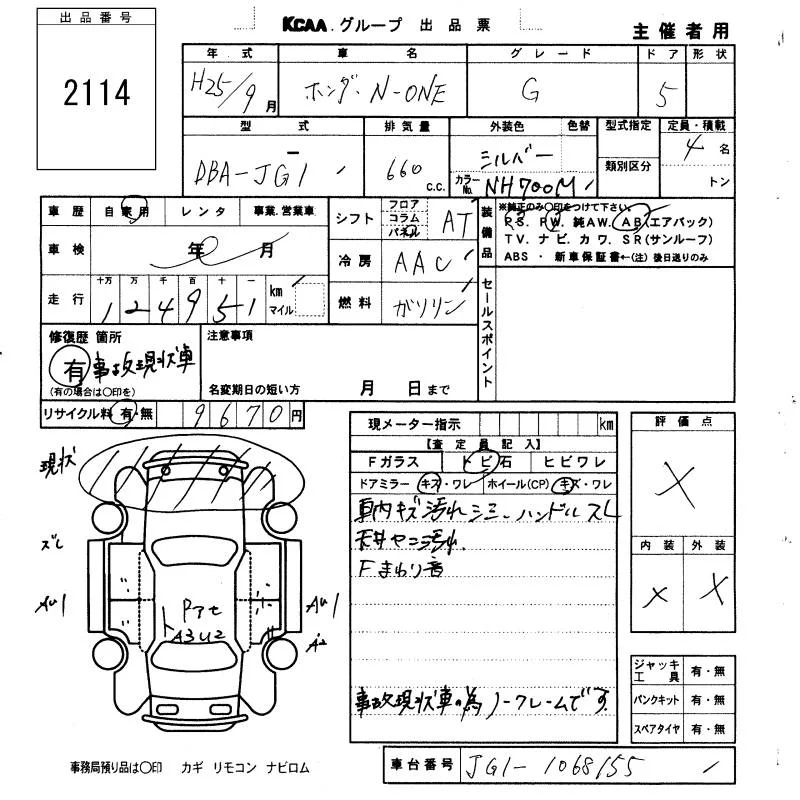 出品番号
2114
KCAA.グループ 出品票
主催者用
年式 車名 グレード ドア 形状
H25/9月 ホンダ・N-ONE G 5
型式 排気量 外装色 色替 型式指定 定員・積載
DBA-JG1 660 c.c. シルバー 類別区分 4名
カラーNo. NH700M トン
車歴 自家用 レンタ 事業.営業車
車検 年 月
走行 十万 万 千 百 十 一 km マイル
124951
シフト フロア コラム パネル AT
冷房 AAC
燃料 ガソリン
装備品 ※純正のみ○印をつけて下さい。
P.S. P.W. 純AW. AB(エアバック)
TV. ナビ. カワ. SR(サンルーフ)
ABS ・ 新車保証書←(注) 後日送りのみ
セールスポイント
修復歴 箇所
有 事故現状車
(有の場合は○印を)
注意事項
名変期日の短い方 月 日まで
リサイクル料 有・無 9670円
現メーター指示 km
【査定員記入】
Fガラス トビ石 ヒビワレ
ドアミラー キズ・ワレ ホイール(CP) キズ・ワレ
車内キズ汚れシミ、ハンドルスレ
天井ヤニ汚れ
Fまわり音
事故現状車の為ノークレームです
評価点
X
内装 外装
X X
現状
ズレ
AU1
AU1
A2
Pアセ
A3U2
ジャッキ工具 有・無
パンクキット 有・無
スペアタイヤ 有・無
事務局預り品は○印 カギ リモコン ナビロム
車台番号 JG1-1068155